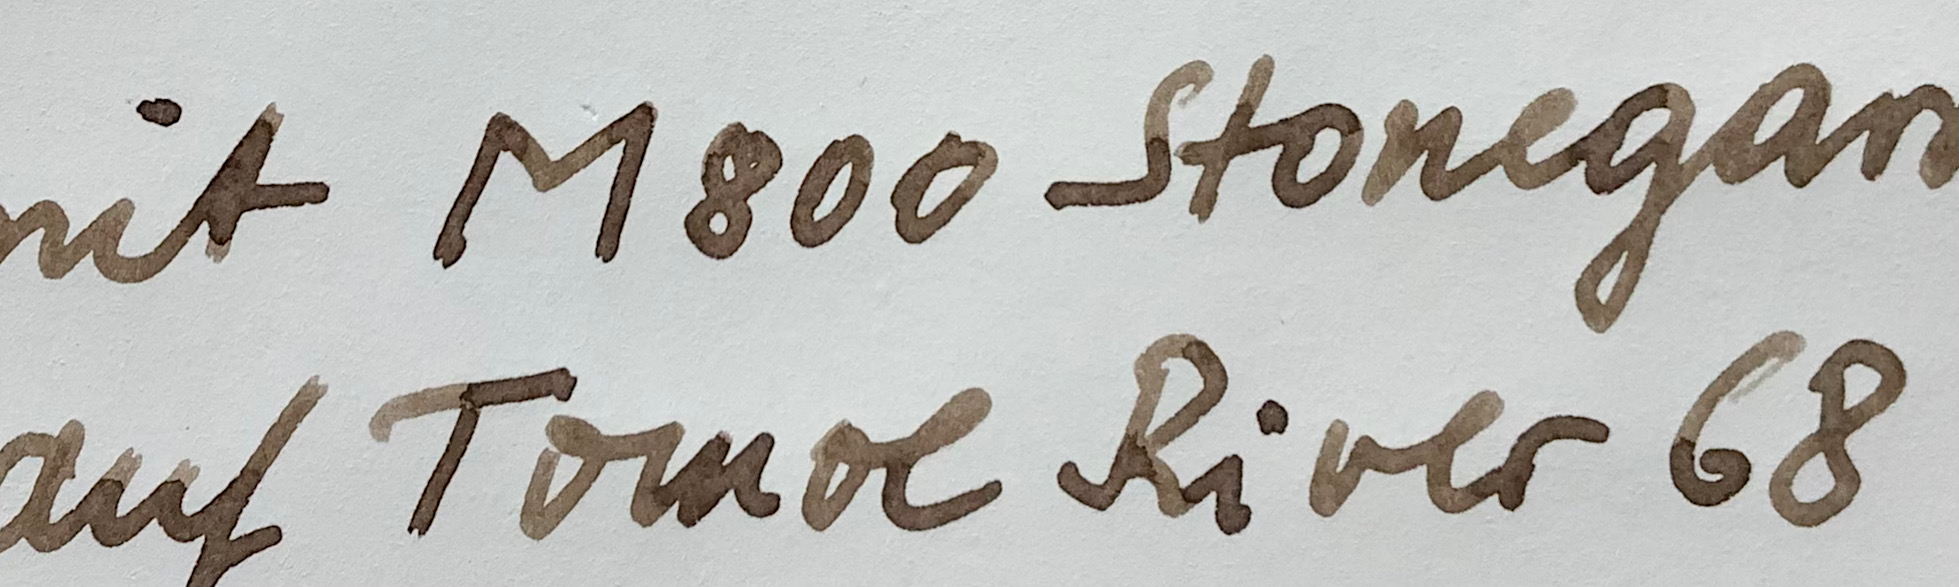 mit M800 Stonegar
auf Tomoe River 68